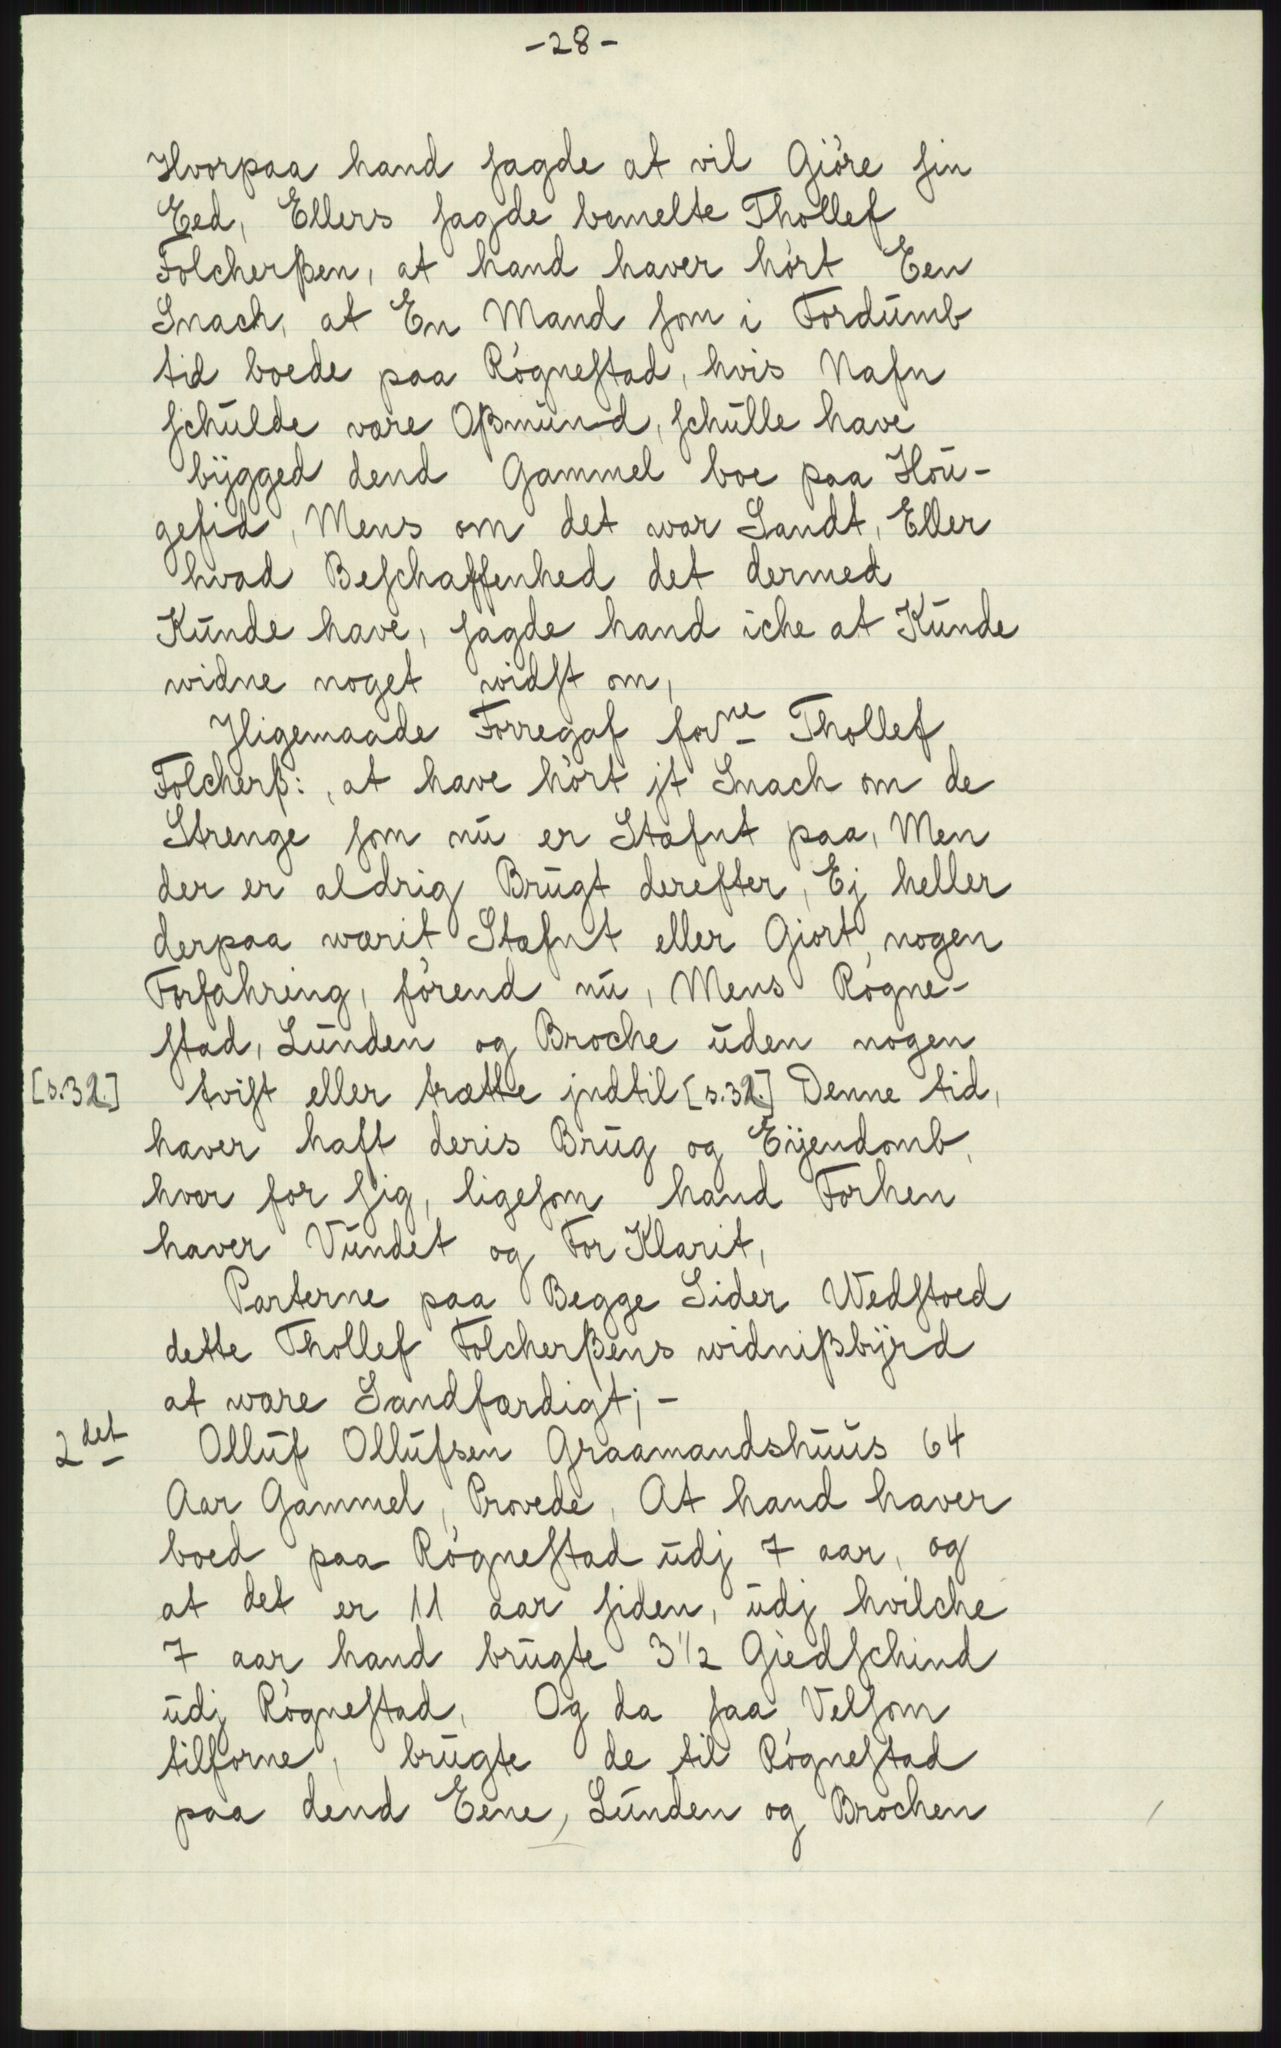 -28-
Hvorpaa hand sagde at vil Giöre sin
Eed, Ellers sagde bemelte Thollef
Folcherßen, at hand haver hört Een
Snach, at En Mand som i Fordumb
tid boede paa Rögnestad, hvis Nafn
schulde være Oßmund, schulle have
bÿgged dend Gammel boe paa Hou-
gefid, Mens om det war Sandt, Eller
hvad Beschaffenhed det dermed
Kunde have, sagde hand iche at Kunde
widne noget widst om,
Jligemaade Forregaf forne Thollef
Folcherß:, at have hört jt Snach om de
Strenge som nu er Stæfnt paa, Men
der er aldrig Brugt derefter, Ej heller
derpaa wærit Stæfnt eller Giort nogen
Forfahring, förend nu, Mens Rögne-
stad, Lunden og Broche uden nogen
[s.32.] tvist eller trætte jndtil [s.32.] Denne tid,
haver haft deris Brug og Eÿendomb,
hver for sig, ligesom hand Forhen
haver Vundet og For Klarit,
Parterne paa Begge Sider Wedstoed
dette Thollef Folcherßens widnißbÿrd
at wære Sandfærdigt; -
2det Olluf Ollufsen Graamandshuus 64
Aar Gammel, Provede, At hand haver
boed paa Rögnestad udj 7 aar, og
at det er 11 aar siden, udj hvilche
7 aar hand brugte 3 1/2 Giedschind
udj Rögnestad, Og da saa Velsom
tilforne, brugte de til Rögnestad
paa dend Eene, Lunden og Brochen